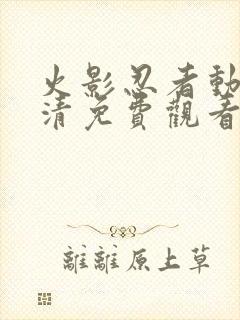 火影忍者動
清免費觀看
離離原上草